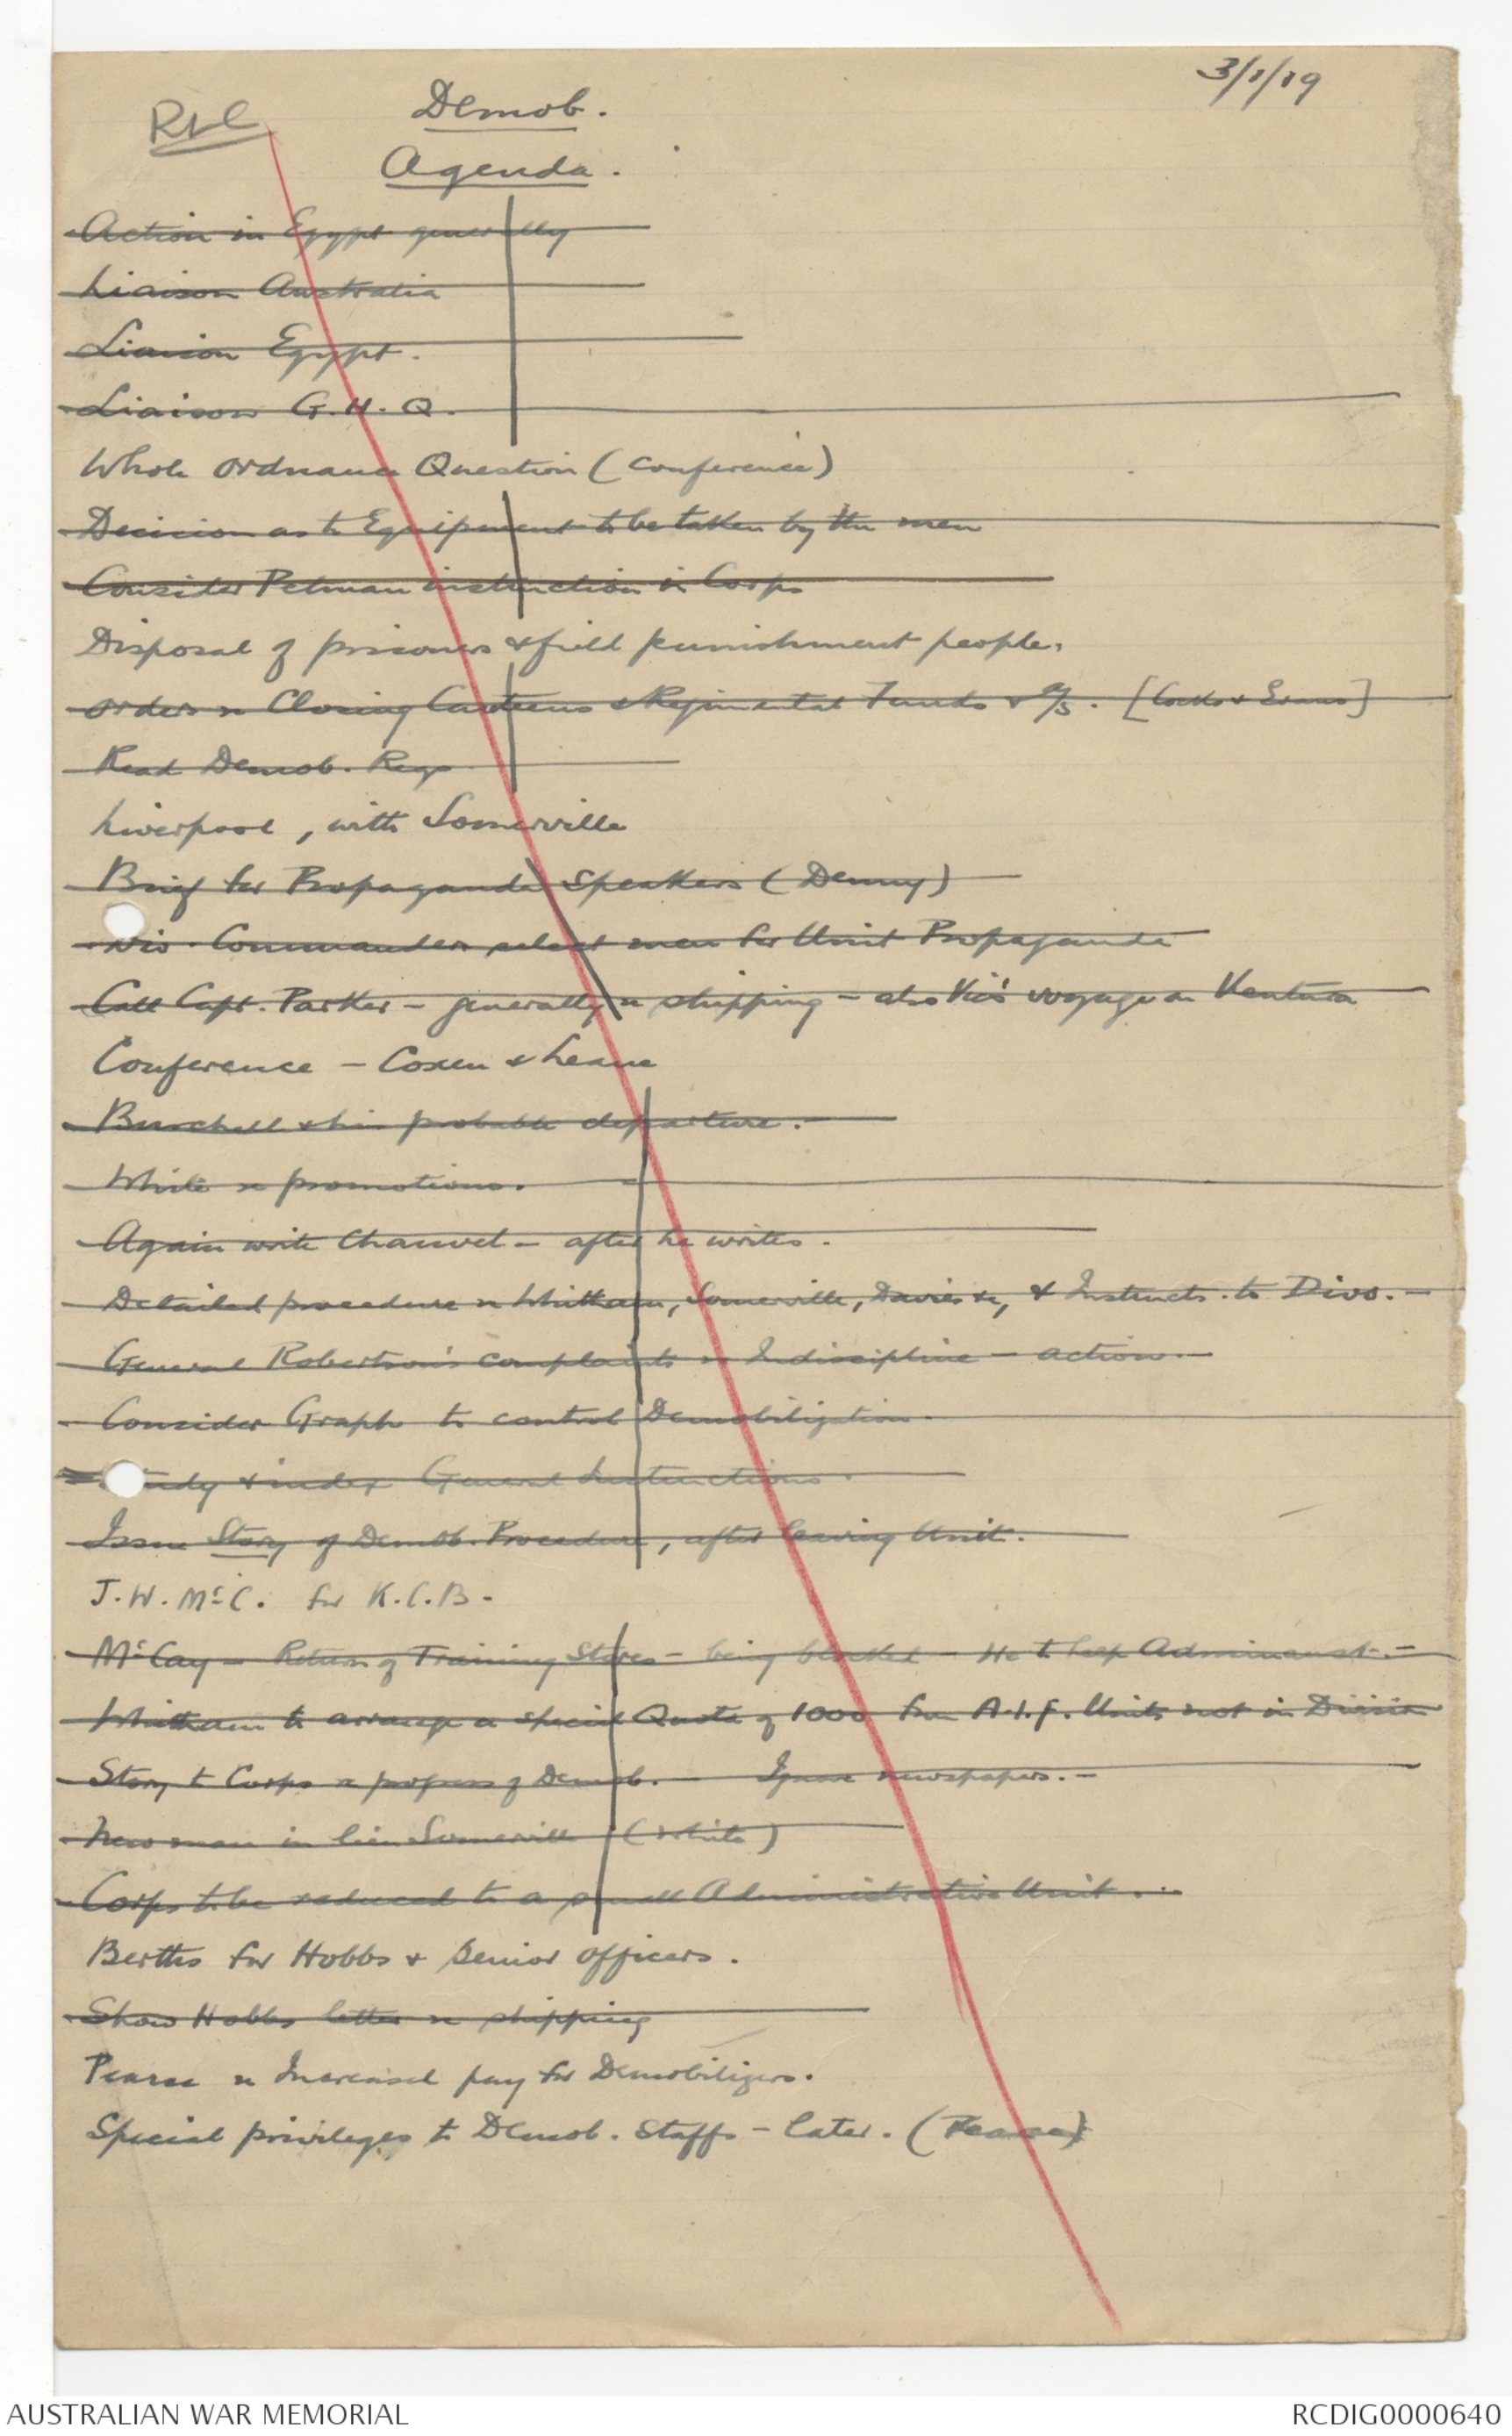 3/1/19
Demob.
Agenda.
Action in Egypt generally
Liaison Australia
Liaison Egypt.
Liaison G.H.Q.
Whole Ordnance Question (Conference)
Decision as to Equipment to be taken by the men
Consider Pelman instruction in Corps
Disposal of prisoners & field punishment people.
Orders re Closing Canteens & Regimental Funds & a/s. [Cocks & Evans]
Read Demob. Regs
Liverpool, with Somerville
Brief for Propaganda Speakers (Denny)
Div. Commanders select men for Unit Propaganda
Call Capt. Parker - generally re shipping - also Vic's voyage on Ventura
Conference - Coxen & Leane
Burchell & his probable departure.
White re promotions.
Again write Chauvel - after he writes.
Detailed procedure re Whitham, Somerville, Davies &c, & Instructs. to Divs. -
General Robertson's complaints re Indiscipline - action. -
Consider Graph to control Demobilization.
& index General Instructions.
Issue Story of Demob. Procedure, after leaving Unit.
J.W. McC. for K.C.B. -
McCay - Return of Training Stores - being blocked - He to help -
Whitham to arrange a special Quota of 1000 from A.I.F. Units not in Division
Story to Corps re progress of Demob. - Ignore newspapers. -
New man in lieu Somerville (White)
Corps to be reduced to a small Administrative Unit...
Berths for Hobbs & Senior Officers.
Show Hobbs letter re shipping
Pearce re Increased pay for Demobilizers.
Special privileges to Demob. Staffs - Later. (Pearce)
AUSTRALIAN WAR MEMORIAL
RCDIG0000640